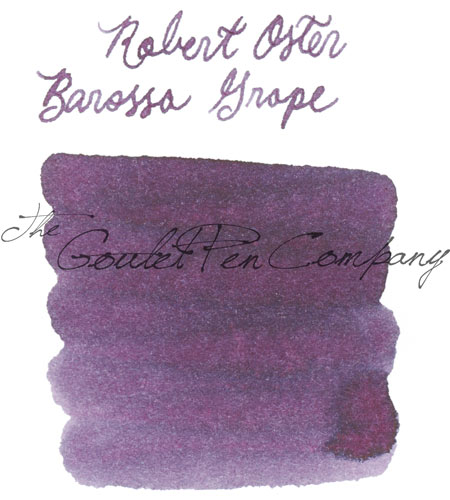 Robert Oster
Barossa Grape
The
Goulet Pen Company